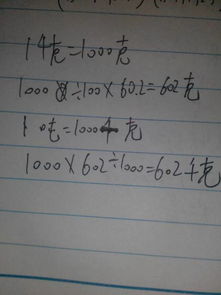 1千克=1000克
1000÷100×60.2=602克
1吨=1000千克
1000×602÷1000=602千克